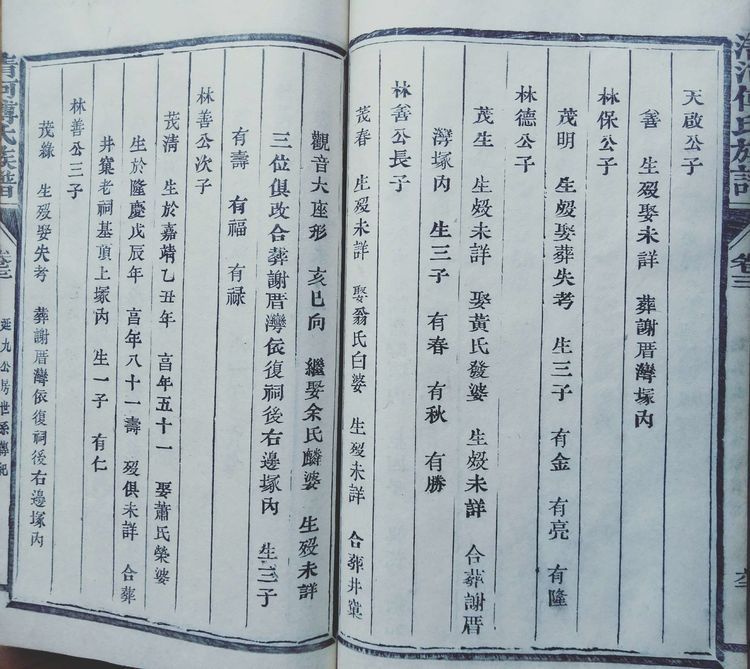 天啟公子
善 生殁娶未詳 葬謝厝灣塚內
林保公子
茂明 生殁娶葬失考 生三子 有金 有亮 有隆
林德公子
茂生 生殁未詳 娶黃氏發婆 生殁未詳 合葬謝厝
灣塚內 生三子 有春 有秋 有勝
林善公長子
茂春 生殁未詳 娶翁氏白婆 生殁未詳 合葬井窠
觀音大座形 亥巳向 繼娶余氏麟婆 生殁未詳
三位俱改合葬謝厝灣依復祠後右邊塚內 生三子
有壽 有福 有禄
林善公次子
茂清 生於嘉靖乙丑年 亯年五十一 娶蕭氏榮婆
生於隆慶戊辰年 亯年八十一壽 殁俱未詳 合葬
井窠老祠基頂上塚內 生一子 有仁
林善公三子
茂綠 生殁娶失考 葬謝厝灣依復祠後右邊塚內
清河傅氏族譜
卷三
延九公房世系傳紀